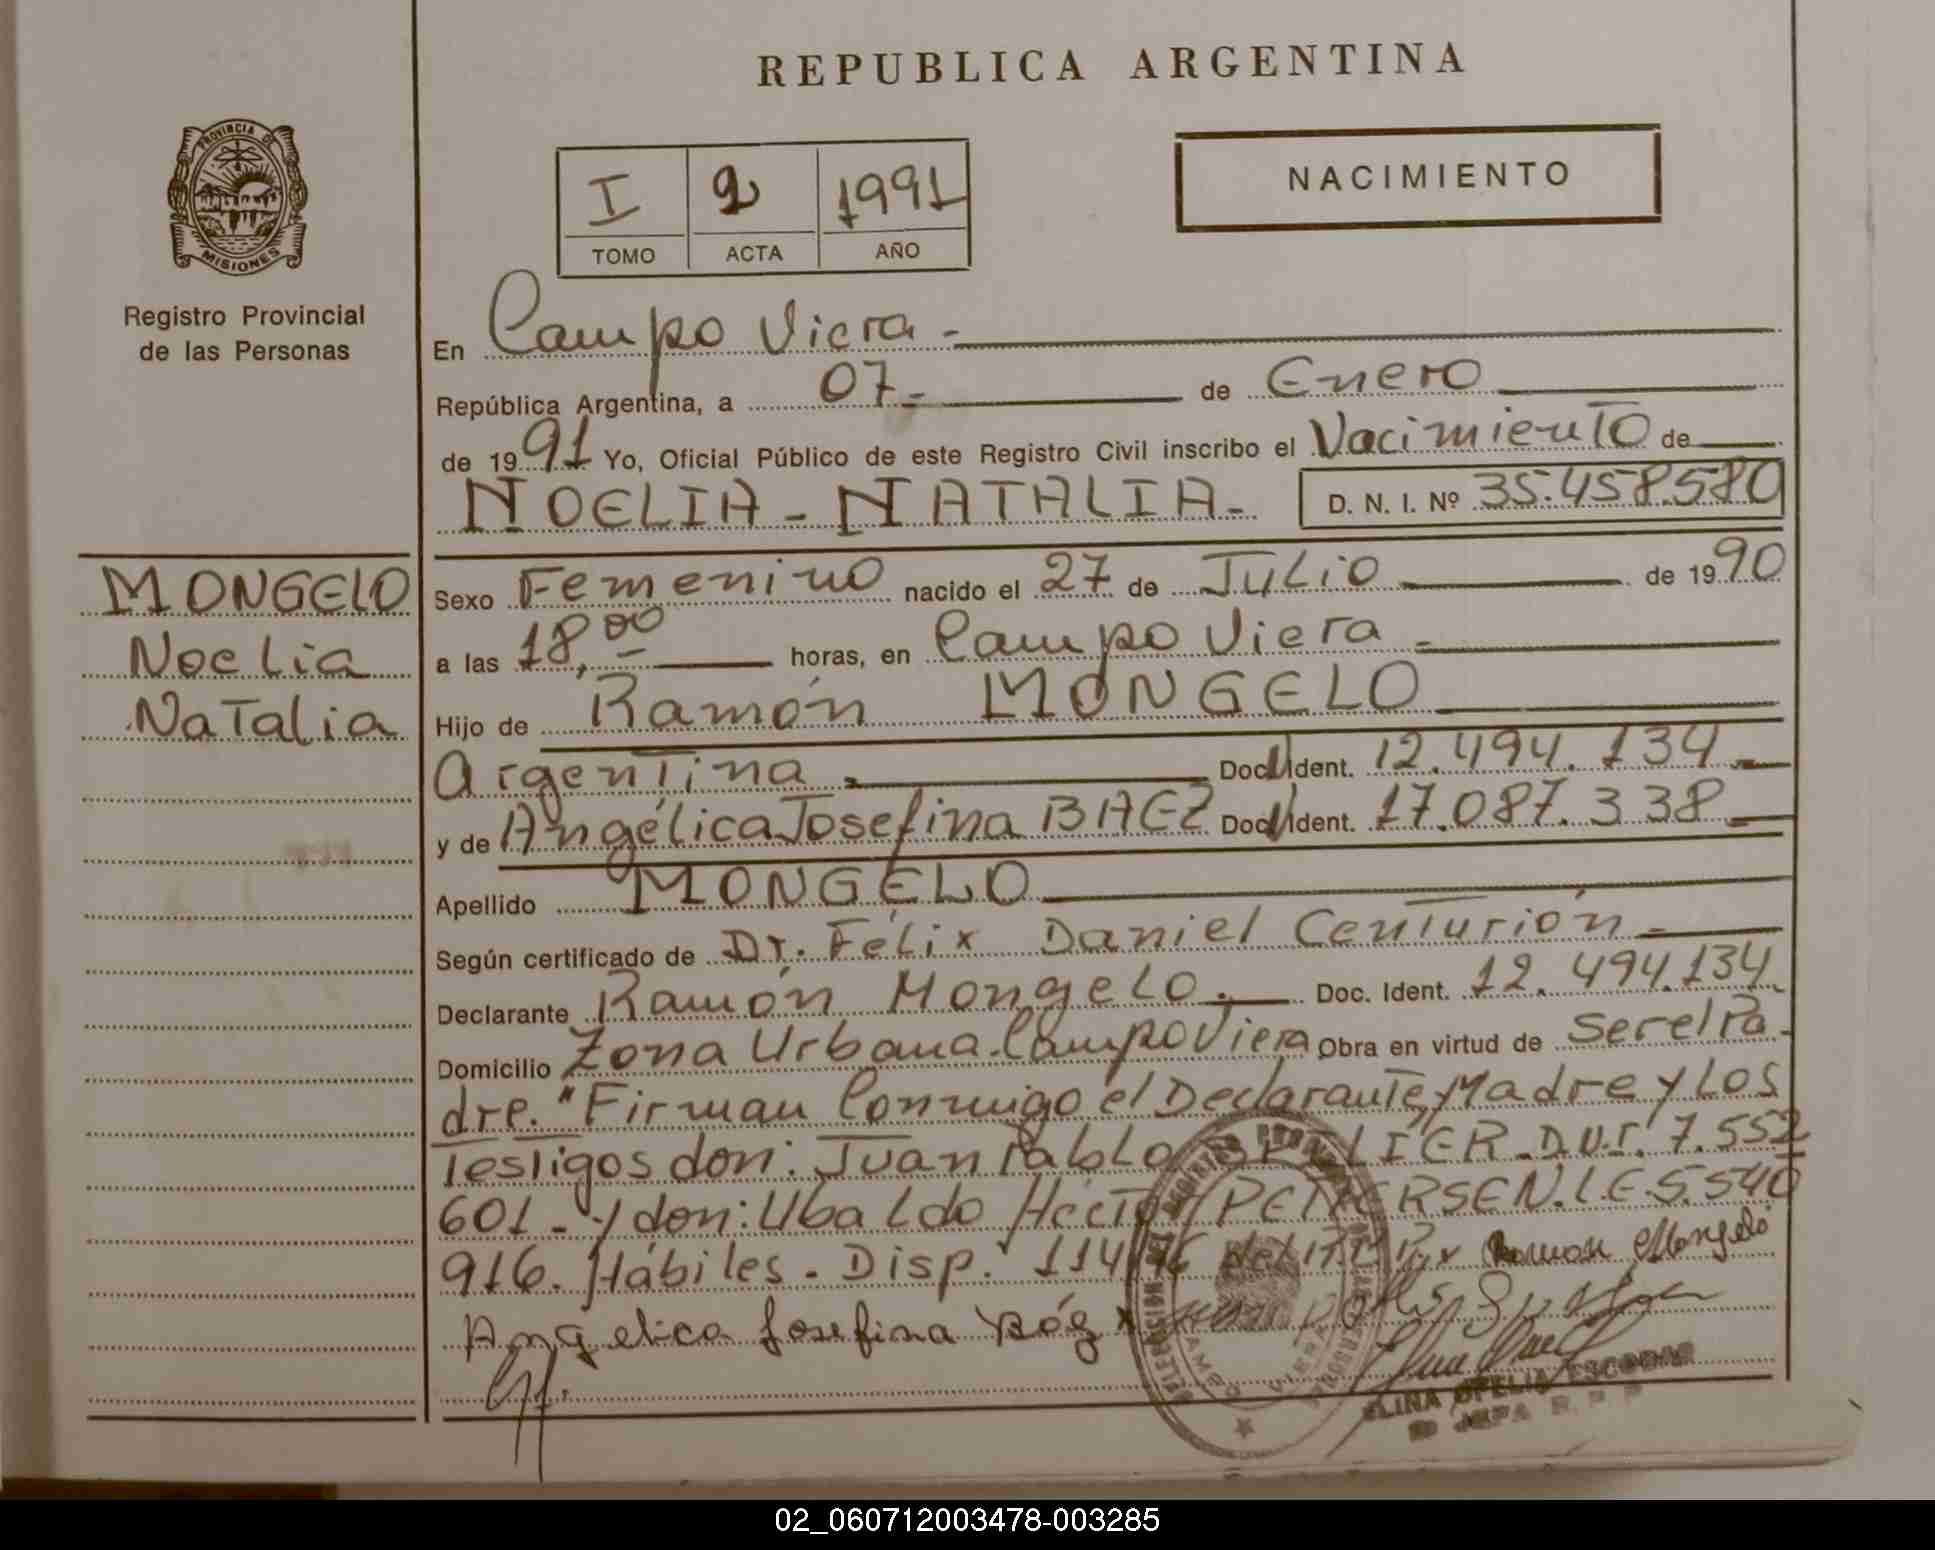 REPUBLICA ARGENTINA
PROVINCIA DE
MISIONES
Registro Provincial
de las Personas
I 2 1991
TOMO ACTA AÑO
NACIMIENTO
En Campo Viera -
República Argentina, a 07- de Enero
de 1991 Yo, Oficial Público de este Registro Civil inscribo el Nacimiento de
NOELIA - NATALIA - D. N. I. Nº 35.458.580
MONGELO
Noelia
Natalia
Sexo Femenino nacido el 27 de Julio de 1990
a las 18,00 horas, en Campo Viera -
Hijo de Ramón MONGELO
Argentina - Doc. Ident. 12.494.134 -
y de Angélica Josefina BAEZ Doc. Ident. 17.087.338 -
Apellido MONGELO
Según certificado de Dr. Félix Daniel Centurión -
Declarante Ramón Mongelo. Doc. Ident. 12.494.134
Domicilio Zona Urbana-Campo Viera Obra en virtud de ser el Pa-
dre. "Firman Conmigo el Declarante, Madre y Los
Testigos don: Juan Pablo D.N.I. 7.552
601 - y don: Ubaldo Héctor PETTERSEN. L.E. 5.540
916. Hábiles. Disp. 114 Ramon Mongelo
Angelica Josefina Báez
ELINA OFELIA ESCOBAR
JEFA R. P. P.
02_060712003478-003285